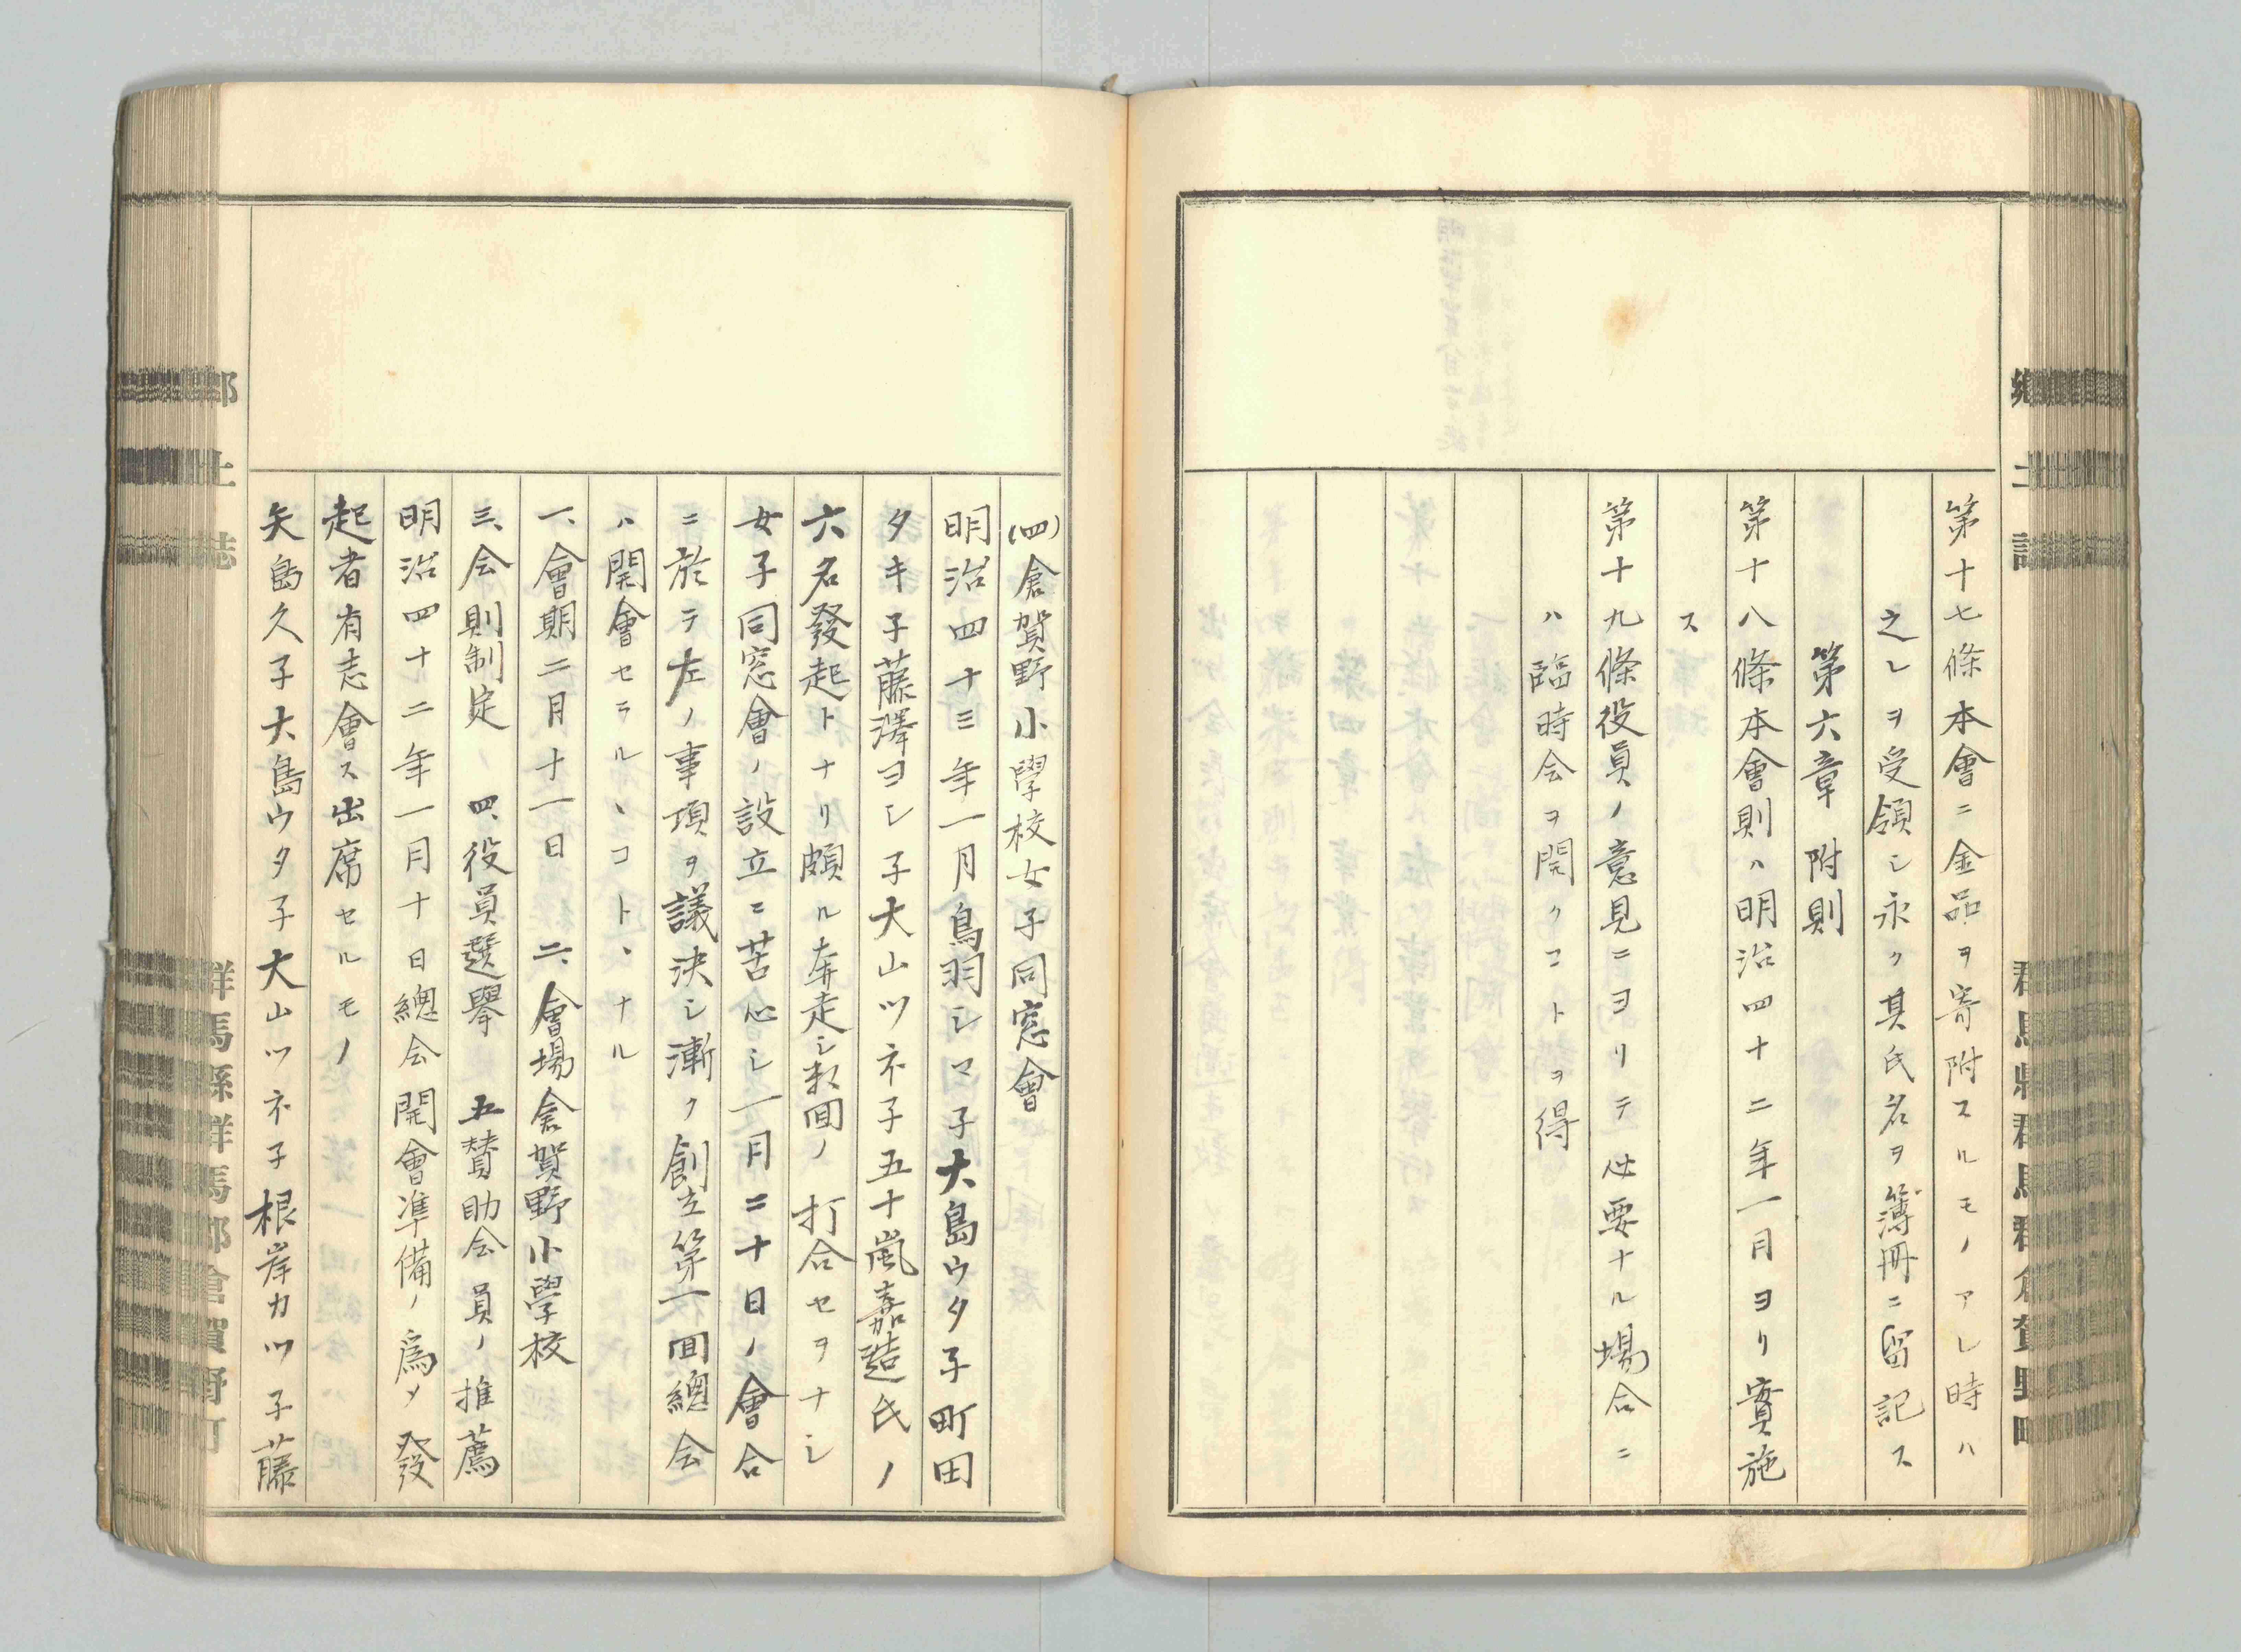 第十七條本會ニ金品ヲ寄附スルモノアレ時ハ
之レヲ受領シ永ク其氏名ヲ簿冊ニ留記ス
第六章 附則
第十八條本會則ハ明治四十二年一月ヨリ實施
ス
第十九條役員ノ意見ニヨリテ必要ナル場合ニ
ハ臨時会ヲ開クコトヲ得
(四)倉賀野小學校女子同窓會
明治四十三年一月鳥羽シマ子大島ウタ子町田
タキ子藤澤ヨシ子大山ツネ子五十嵐嘉造氏ノ
六名發起トナリ頗ル奔走シ数回ノ打合セヲナシ
女子同窓會ノ設立ニ苦心シ一月二十日ノ會合
ニ於テ左ノ事項ヲ議決シ漸ク創立第一回總会
ハ開會セラルヽコトヽナル
一、會期二月十一日 二、會場倉賀野小學校
三、会則制定 四、役員選擧 五賛助会員ノ推薦
明治四十二年一月十日總会開會準備ノ爲メ發
起者有志會ス出席セルモノ
矢島久子大島ウタ子大山ツネ子根岸カツ子藤
郷土誌
群馬縣群馬郡倉賀野町